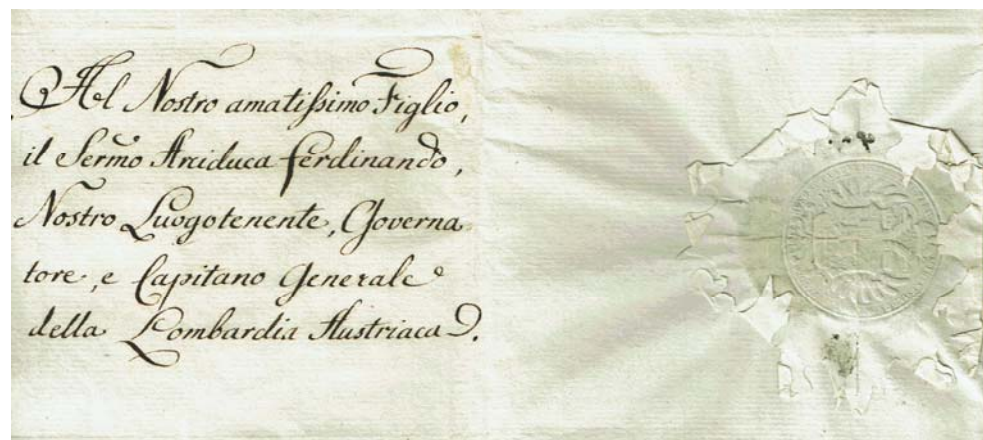 Al Nostro amatissimo Figlio,
il Sermo Arciduca Ferdinando,
Nostro Luogotenente, Governa
tore, e Capitano Generale
della Lombardia Austriaca.